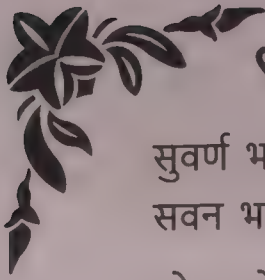 सुवर्ण भ
सवन भ